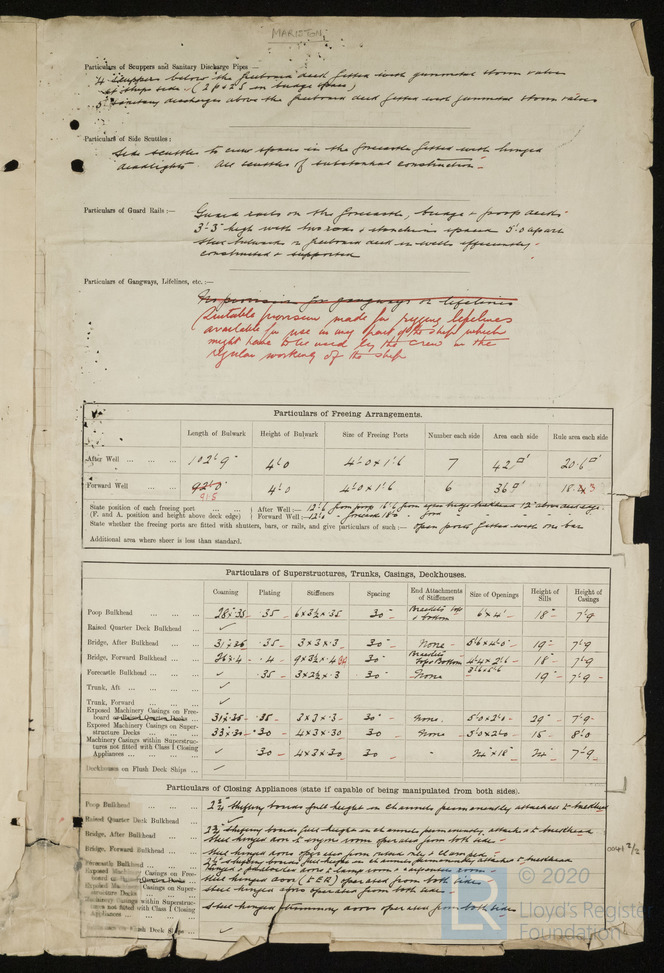 MARISTON
Particulars of Scuppers and Sanitary Discharge Pipes —
4 Scuppers below the freeboard deck fitted with gunmetal storm valves
at ships side. (2 P & 2 S in bridge space)
5 Sanitary discharges above the freeboard deck fitted with gunmetal storm valves
Particulars of Side Scuttles :
Side scuttles to crew spaces in the forecastle fitted with hinged
deadlights. All scuttles of substantial construction.
Particulars of Guard Rails :—
Guard rails on the forecastle, bridge & poop decks
3'-3" high with two rods & stanchions spaced 5'-0 apart
Steel bulwarks on freeboard deck in wells efficiently
constructed & supported
Particulars of Gangways, Lifelines, etc. :—
No provision for gangways or lifelines
Suitable provision made for rigging lifelines
available for use in any part of the ship which
might have to be used by the crew in the
regular working of the ship
Particulars of Freeing Arrangements.
Length of Bulwark Height of Bulwark Size of Freeing Ports Number each side Area each side Rule area each side
After Well ... ... ... 102'-9" 4'-0 4'-0 x 1'-6 7 42 □' 20.6 □'
Forward Well ... ... 92'-0" 4'-0 4'-0 x 1'-6 6 36 □' 18.
91.5
State position of each freeing port ... ... After Well :—
(F. and A. position and height above deck edge) Forward Well :—
State whether the freeing ports are fitted with shutters, bars, or rails, and give particulars of such :— open ports fitted with one bar
Additional area where sheer is less than standard.
Particulars of Superstructures, Trunks, Casings, Deckhouses.
Coaming Plating Stiffeners Spacing End Attachments of Stiffeners Size of Openings Height of Sills Height of Casings
Poop Bulkhead ... ... ... 28 x .35 .35 6 x 3½ x .35 30" Brackets top & bottom 6' x 4' 18" 7'-9
Raised Quarter Deck Bulkhead ... ✓
Bridge, After Bulkhead ... ... 31 x .36 .35 3 x 3 x .3 30" None 5'-6 x 4'-0 19" 7'-9
Bridge, Forward Bulkhead ... ... 36 x .4 .4 9 x 3½ x .4 30" Brackets Top & Bottom 4'-4 x 2'-6 18" 7'-9
Forecastle Bulkhead ... ... ✓ .35 3 x 2½ x .3 30" None 19" 7'-9
Trunk, Aft ... ... ... ✓
Trunk, Forward ... ... ... ✓
Exposed Machinery Casings on Free-
board or Raised Quarter Decks ... 31 x .35 .35 3 x 3 x .3 30" None 5'-0 x 2'-0 29" 7'-9
Exposed Machinery Casings on Super-
structure Decks ... ... ... 33 x .30 .30 4 x 3 x .30 30 None 5'-0 x 2'-0 15" 8'-0
Machinery Casings within Superstruc-
tures not fitted with Class 1 Closing
Appliances ... ... ... ✓ .30 4 x 3 x .30 30 " 24 x 18" 24" 7'-9
Deckhouses on Flush Deck Ships ... ✓
Particulars of Closing Appliances (state if capable of being manipulated from both sides).
Poop Bulkhead ... ... 2¾" shifting boards full height in channels permanently attached to bulkhead
Raised Quarter Deck Bulkhead ✓
Bridge, After Bulkhead ... ... 2½" shifting boards full height in channels permanently attached to bulkhead
Steel hinged door to engine room operated from both sides
Bridge, Forward Bulkhead ...
Forecastle Bulkhead ... 2½" shipping boards full height in channels permanently attached to bulkhead
Exposed Machinery Casings on Free-
board or Raised Quarter Decks ... Steel hinged door (to E.R) operated from both sides
Exposed Machinery Casings on Super-
structure Decks Steel hinged doors operated from both sides
Machinery Casings within Superstruc-
tures not fitted with Class 1 Closing
Appliances ... Steel hinged doors operated from both sides
Deckhouses on Flush Deck Ships ... ✓
0041 2/2
© 2020
LR
Lloyd's Register
Foundation